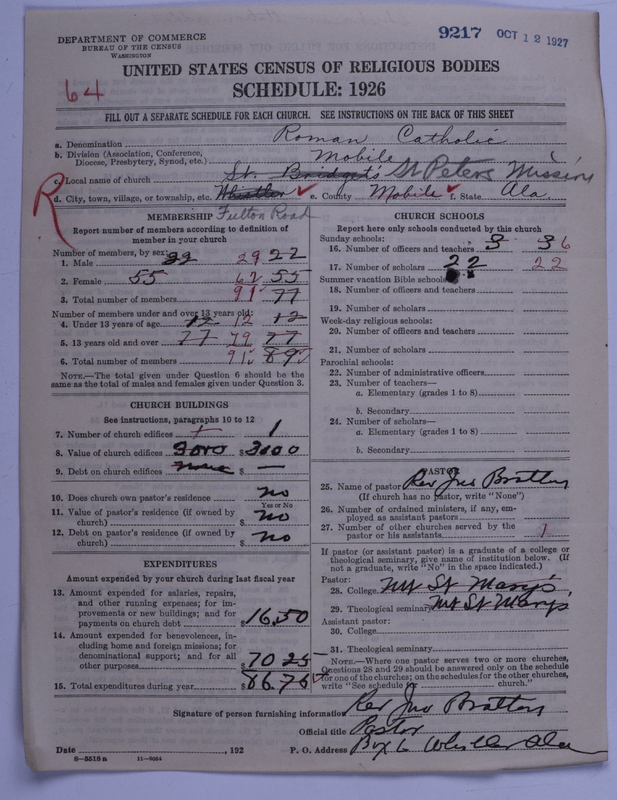 DEPARTMENT OF COMMERCE
BUREAU OF THE CENSUS
WASHINGTON
9217 OCT 12 1927
UNITED STATES CENSUS OF RELIGIOUS BODIES
64
SCHEDULE: 1926
FILL OUT A SEPARATE SCHEDULE FOR EACH CHURCH. SEE INSTRUCTIONS ON THE BACK OF THIS SHEET
a. Denomination Roman Catholic
b. Division (Association, Conference, Diocese, Presbytery, Synod, etc.) Mobile
c. Local name of church St. Bridget's St Peters Missions
R
d. City, town, village, or township, etc. Whistler e. County Mobile f. State Ala.
Fulton Road
MEMBERSHIP
Report number of members according to definition of
member in your church
Number of members, by sex:
1. Male 22 29 22
2. Female 55 62 55
3. Total number of members 91 77
Number of members under and over 13 years old:
4. Under 13 years of age 12 12 12
5. 13 years old and over 77 79 77
6. Total number of members 91 89
NOTE.—The total given under Question 6 should be the
same as the total of males and females given under Question 3.
CHURCH BUILDINGS
See instructions, paragraphs 10 to 12
7. Number of church edifices 1 1
8. Value of church edifices 3000 $ 3000
9. Debt on church edifices none $ —
10. Does church own pastor's residence no
Yes or No
11. Value of pastor's residence (if owned by
church) $ no
12. Debt on pastor's residence (if owned by
church) $ no
EXPENDITURES
Amount expended by your church during last fiscal year
13. Amount expended for salaries, repairs,
and other running expenses; for im-
provements or new buildings; and for
payments on church debt $ 16.50
14. Amount expended for benevolences, in-
cluding home and foreign missions; for
denominational support; and for all
other purposes $ 70 25
15. Total expenditures during year $ 86.75
CHURCH SCHOOLS
Report here only schools conducted by this church
Sunday schools:
16. Number of officers and teachers 3 3 6
17. Number of scholars 22 22
Summer vacation Bible schools:
18. Number of officers and teachers
19. Number of scholars
Week-day religious schools:
20. Number of officers and teachers
21. Number of scholars
Parochial schools:
22. Number of administrative officers
23. Number of teachers—
a. Elementary (grades 1 to 8)
b. Secondary
24. Number of scholars—
a. Elementary (grades 1 to 8)
b. Secondary
PASTOR
25. Name of pastor Rev Jno Brattey
(If church has no pastor, write "None")
26. Number of ordained ministers, if any, em-
ployed as assistant pastors
27. Number of other churches served by the
pastor or his assistants 1
If pastor (or assistant pastor) is a graduate of a college or
theological seminary, give name of institution below. (If
not a graduate, write "No" in the space indicated.)
Pastor:
28. College Mt St Mary's
29. Theological seminary Mt St Marys
Assistant pastor:
30. College
31. Theological seminary
NOTE.—Where one pastor serves two or more churches,
Questions 28 and 29 should be answered only on the schedule
for one of the churches; on the schedules for the other churches,
write "See schedule for church."
Signature of person furnishing information Rev Jno Brattey
Official title Pastor
Date , 192 P. O. Address Box 6 Whistler Ala
6—5516 a 11—9064